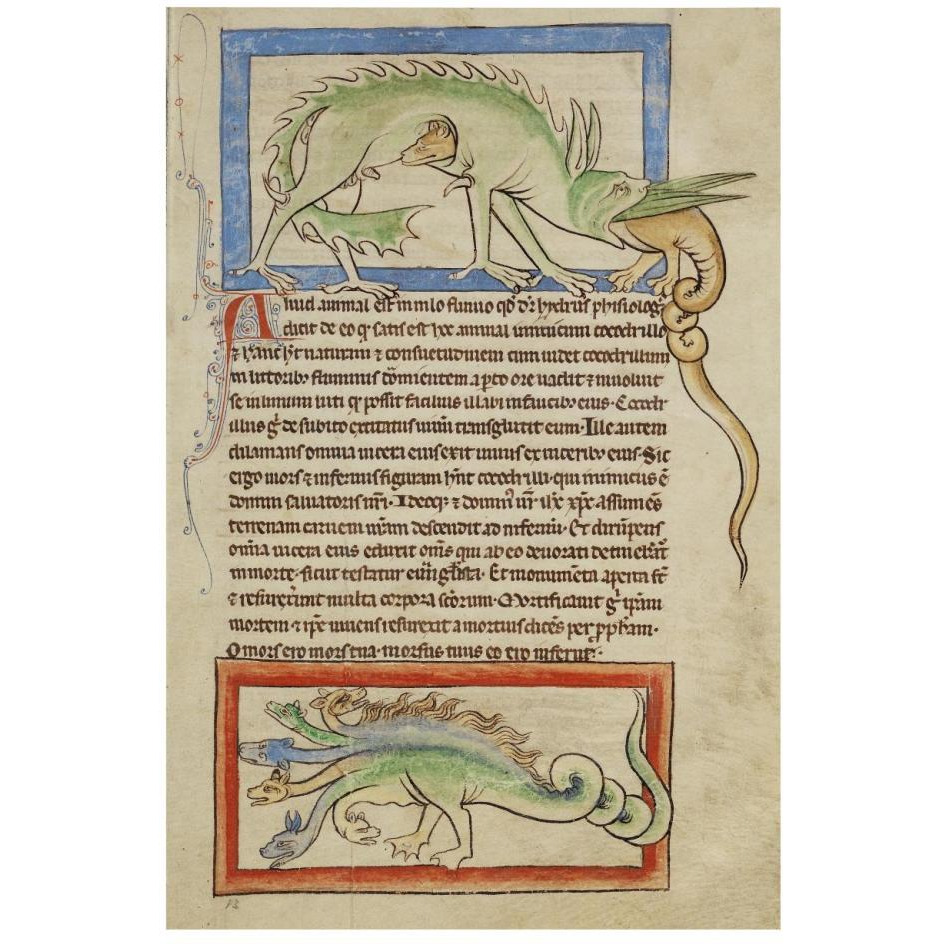 Aliud animal est in nilo flumine qd dr hydrus phisiolog
dicit de eo q satis est hoc animal inimicum cocodrillo
⁊ hanc ht naturam ⁊ consuetudinem cum uidet cocodrillum
in littoribus fluminis dormientem aperto ore uadit ⁊ inuoluit
se in limum luti q possit facilius illabi in faucibus eius. Cocodr
illus g de subito excitatus uiuum transglutit eum. Ille autem
dilanians omnia uiscera eius exit uiuus ex uisceribus eius. Sic
ergo mors ⁊ infernus figuram hnt cocodrilli. qui inimicus ē
domini saluatoris nri. Ideoq; ⁊ dominus nr ihc xpc assumēs
terrenam carnem nram descendit ad infernum. Et dirumpens
omīa uiscera eius eduxit omēs qui ab eo deuorati detinebāt
in morte. sicut testatur euuāgelista. Et monumēta aperta st
⁊ resurexerunt multa corpora scōrum. Mortificauit g ipsam
mortem ⁊ ipe uiuens resurexit a mortuis dicēs per pphetam.
O mors ero mors tua. morsus tuus ero inferne.